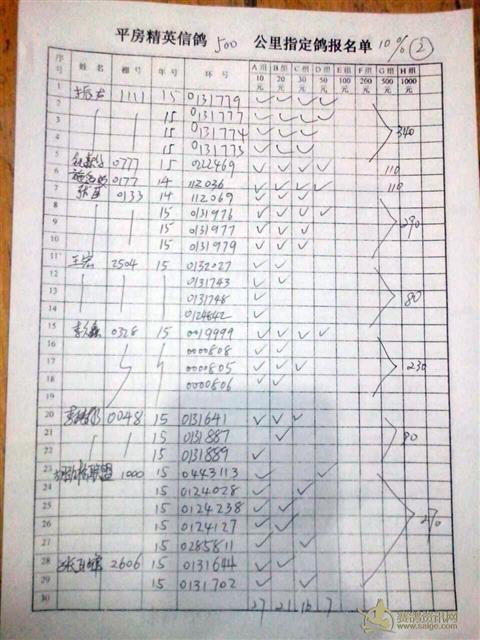 平房精英信鸽 500 公里指定鸽报名单 10% ②
序号 姓名 棚号 年号 环号 A组10元 B组20元 C组30元 D组50元 E组100元 F组200元 G组500元 H组1000元
1 1111 15 0131779 ✓ ✓ ✓ ✓
2 15 0131777 ✓ ✓ ✓ ✓
3 15 0131774 ✓ ✓ ✓ 340
4 15 0131773 ✓ ✓ ✓
5 0777 15 0222469 ✓ ✓ ✓ ✓ 110
6 0177 14 112036 ✓ ✓ ✓ ✓ 110
7 0133 14 112069 ✓ ✓ ✓
8 15 0131976 ✓ ✓ ✓ ✓
9 15 0131977 ✓ ✓ ✓ 290
10 15 0131979 ✓ ✓ ✓
11 王宏 2504 15 0132027 ✓ ✓
12 0131743 ✓ ✓
13 0131748 ✓ 80
14 0124842 ✓
15 0328 15 0019999 ✓ ✓ ✓ ✓
16 0000808 ✓ ✓
17 0000805 ✓ ✓ ✓ 230
18 0000806 ✓ ✓
19
20 0048 15 0131641 ✓ ✓ ✓
21 15 0131887 ✓
22 15 0131889 ✓ 90
23 联盟 1000 15 0443113 ✓ ✓
24 15 0124028 ✓ ✓
25 15 0124238 ✓ ✓
26 15 0124127 ✓ ✓ 270
27 15 0285811 ✓ ✓
28 2606 15 0131644 ✓ ✓
29 15 0131702 ✓ ✓
30 27 21 16 7
赛鸽资讯网
www.saige.com